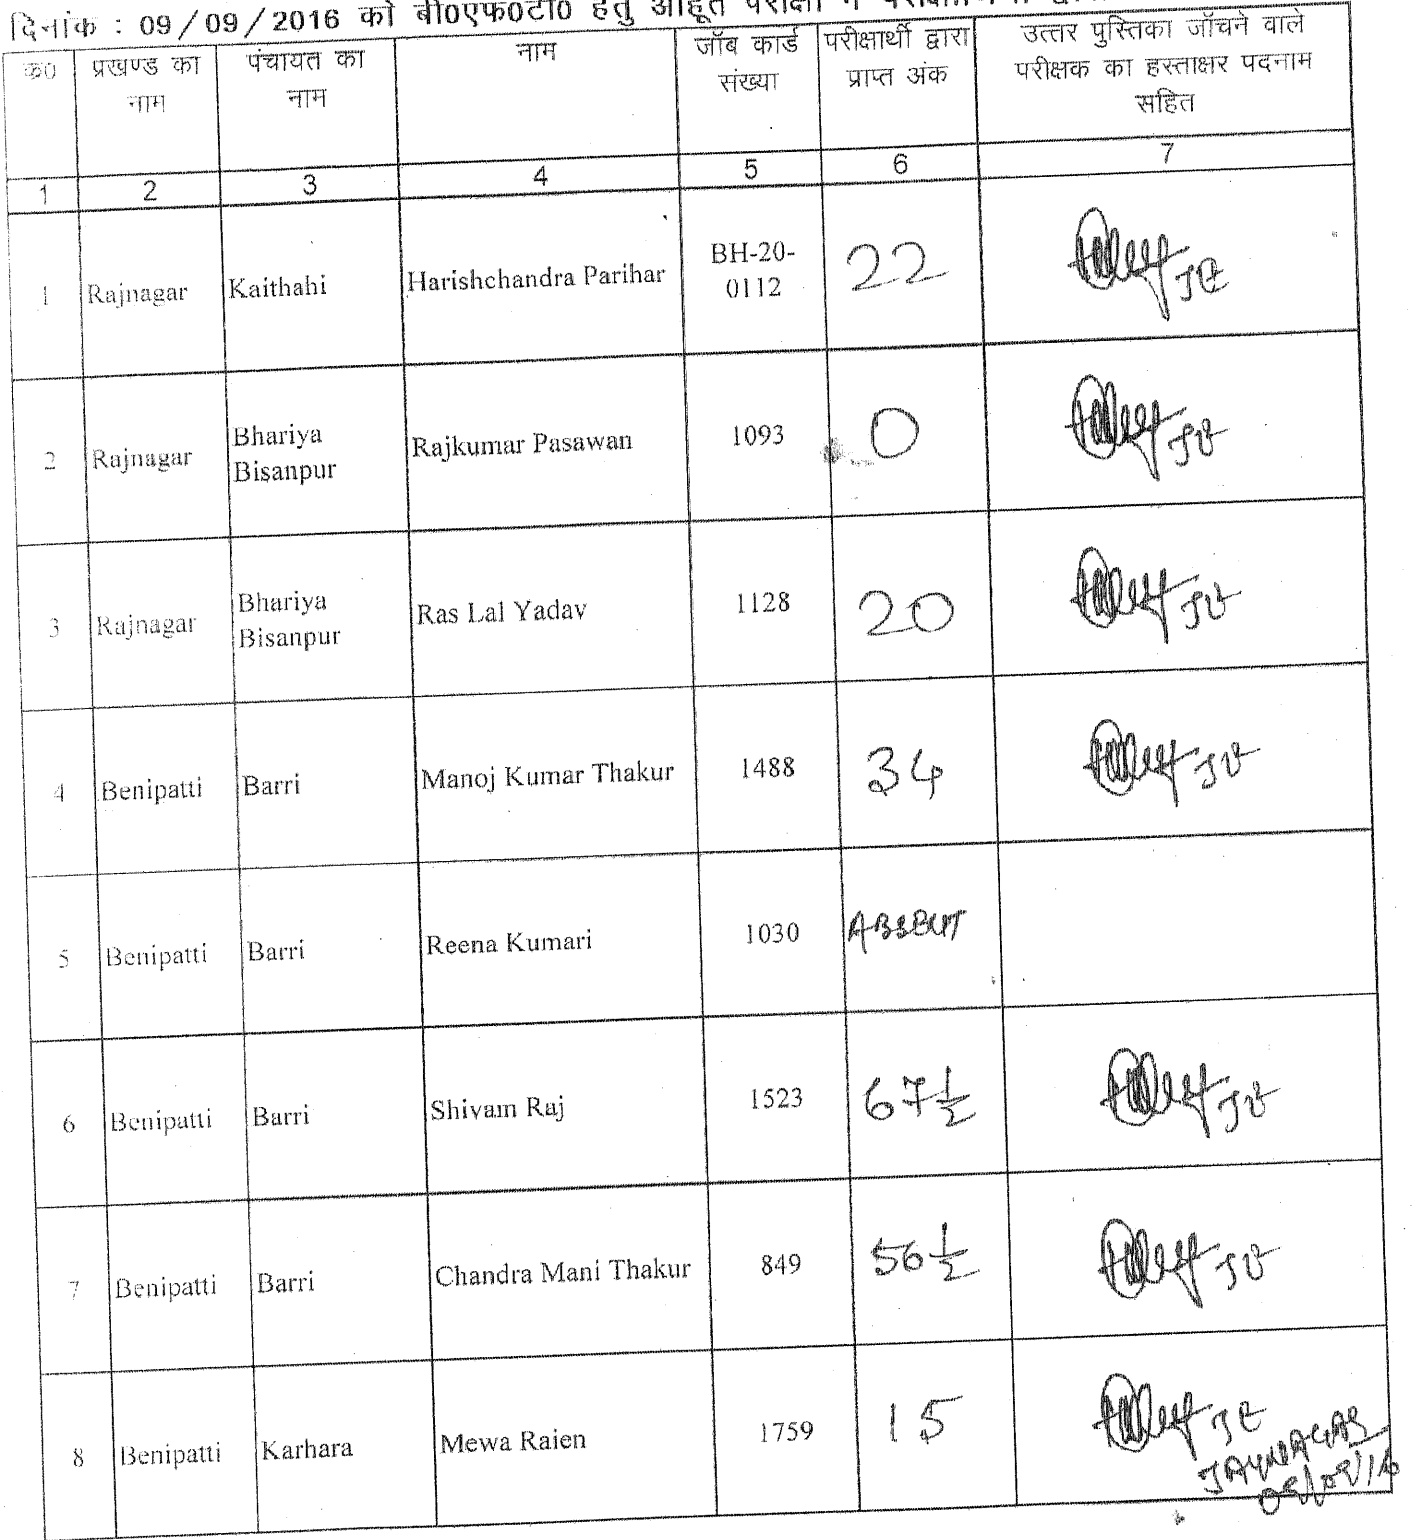 दिनांक : 09/09/2016 को बी0एफ0टी0 हेतु आहूत परीक्षा में
क0 प्रखण्ड का नाम पंचायत का नाम नाम जॉब कार्ड संख्या परीक्षार्थी द्वारा प्राप्त अंक उत्तर पुस्तिका जॉचने वाले परीक्षक का हस्ताक्षर पदनाम सहित
1 2 3 4 5 6 7
1 Rajnagar Kaithahi Harishchandra Parihar BH-20-0112 22 JE
2 Rajnagar Bhariya Bisanpur Rajkumar Pasawan 1093 0 JE
3 Rajnagar Bhariya Bisanpur Ras Lal Yadav 1128 20 JE
4 Benipatti Barri Manoj Kumar Thakur 1488 34 JE
5 Benipatti Barri Reena Kumari 1030 ABSENT
6 Benipatti Barri Shivam Raj 1523 67 1/2 JE
7 Benipatti Barri Chandra Mani Thakur 849 56 1/2 JE
8 Benipatti Karhara Mewa Raien 1759 15 JE
JAYNAGAR
09/09/16